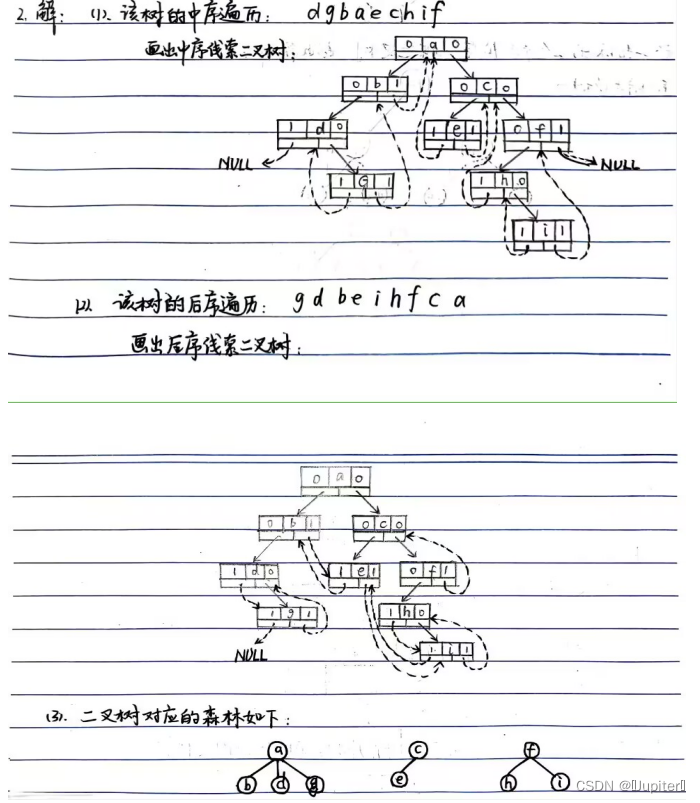 2. 解: (1). 该树的中序遍历: d g b a e c h i f
画出中序线索二叉树:
0 a 0
0 b 1 0 c 0
1 d 0 1 e 1 0 f 1
NULL NULL
1 g 1 1 h 0
1 i 1
(2). 该树的后序遍历: g d b e i h f c a
画出后序线索二叉树:
0 a 0
0 b 1 0 c 0
1 d 0 1 e 1 0 f 1
1 g 1 1 h 0
1 i 1
NULL
(3). 二叉树对应的森林如下:
a c f
b d g e h i
CSDN @Jupiter